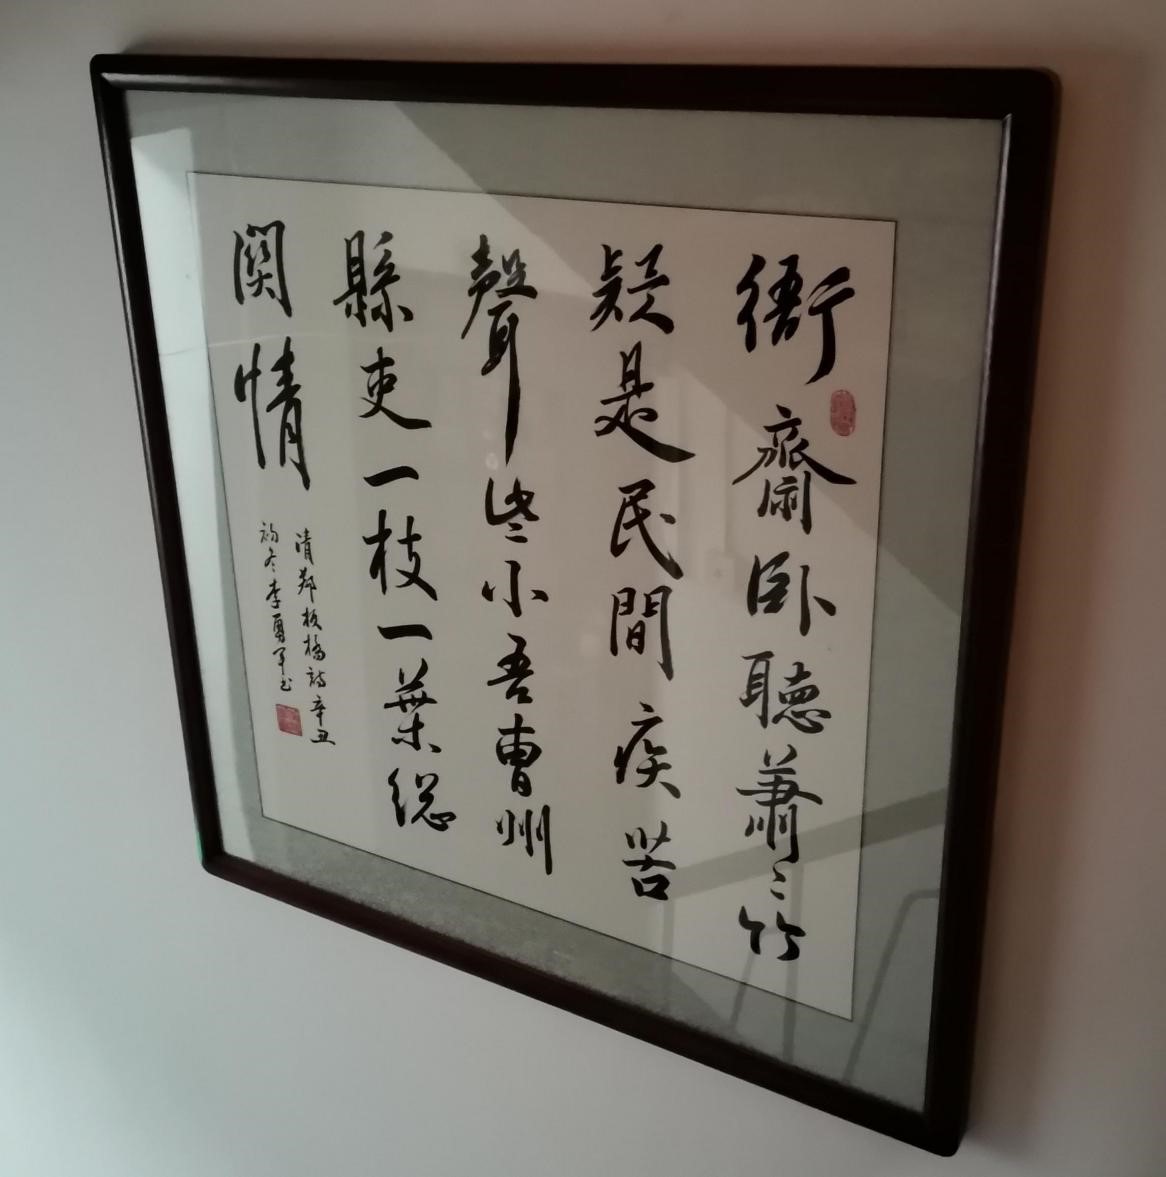 衙齋卧聽蕭〻竹
疑是民間疾苦
聲些小吾曹州
縣吏一枝一葉總
關情
清鄭板橋詩辛丑
初冬李勇军书